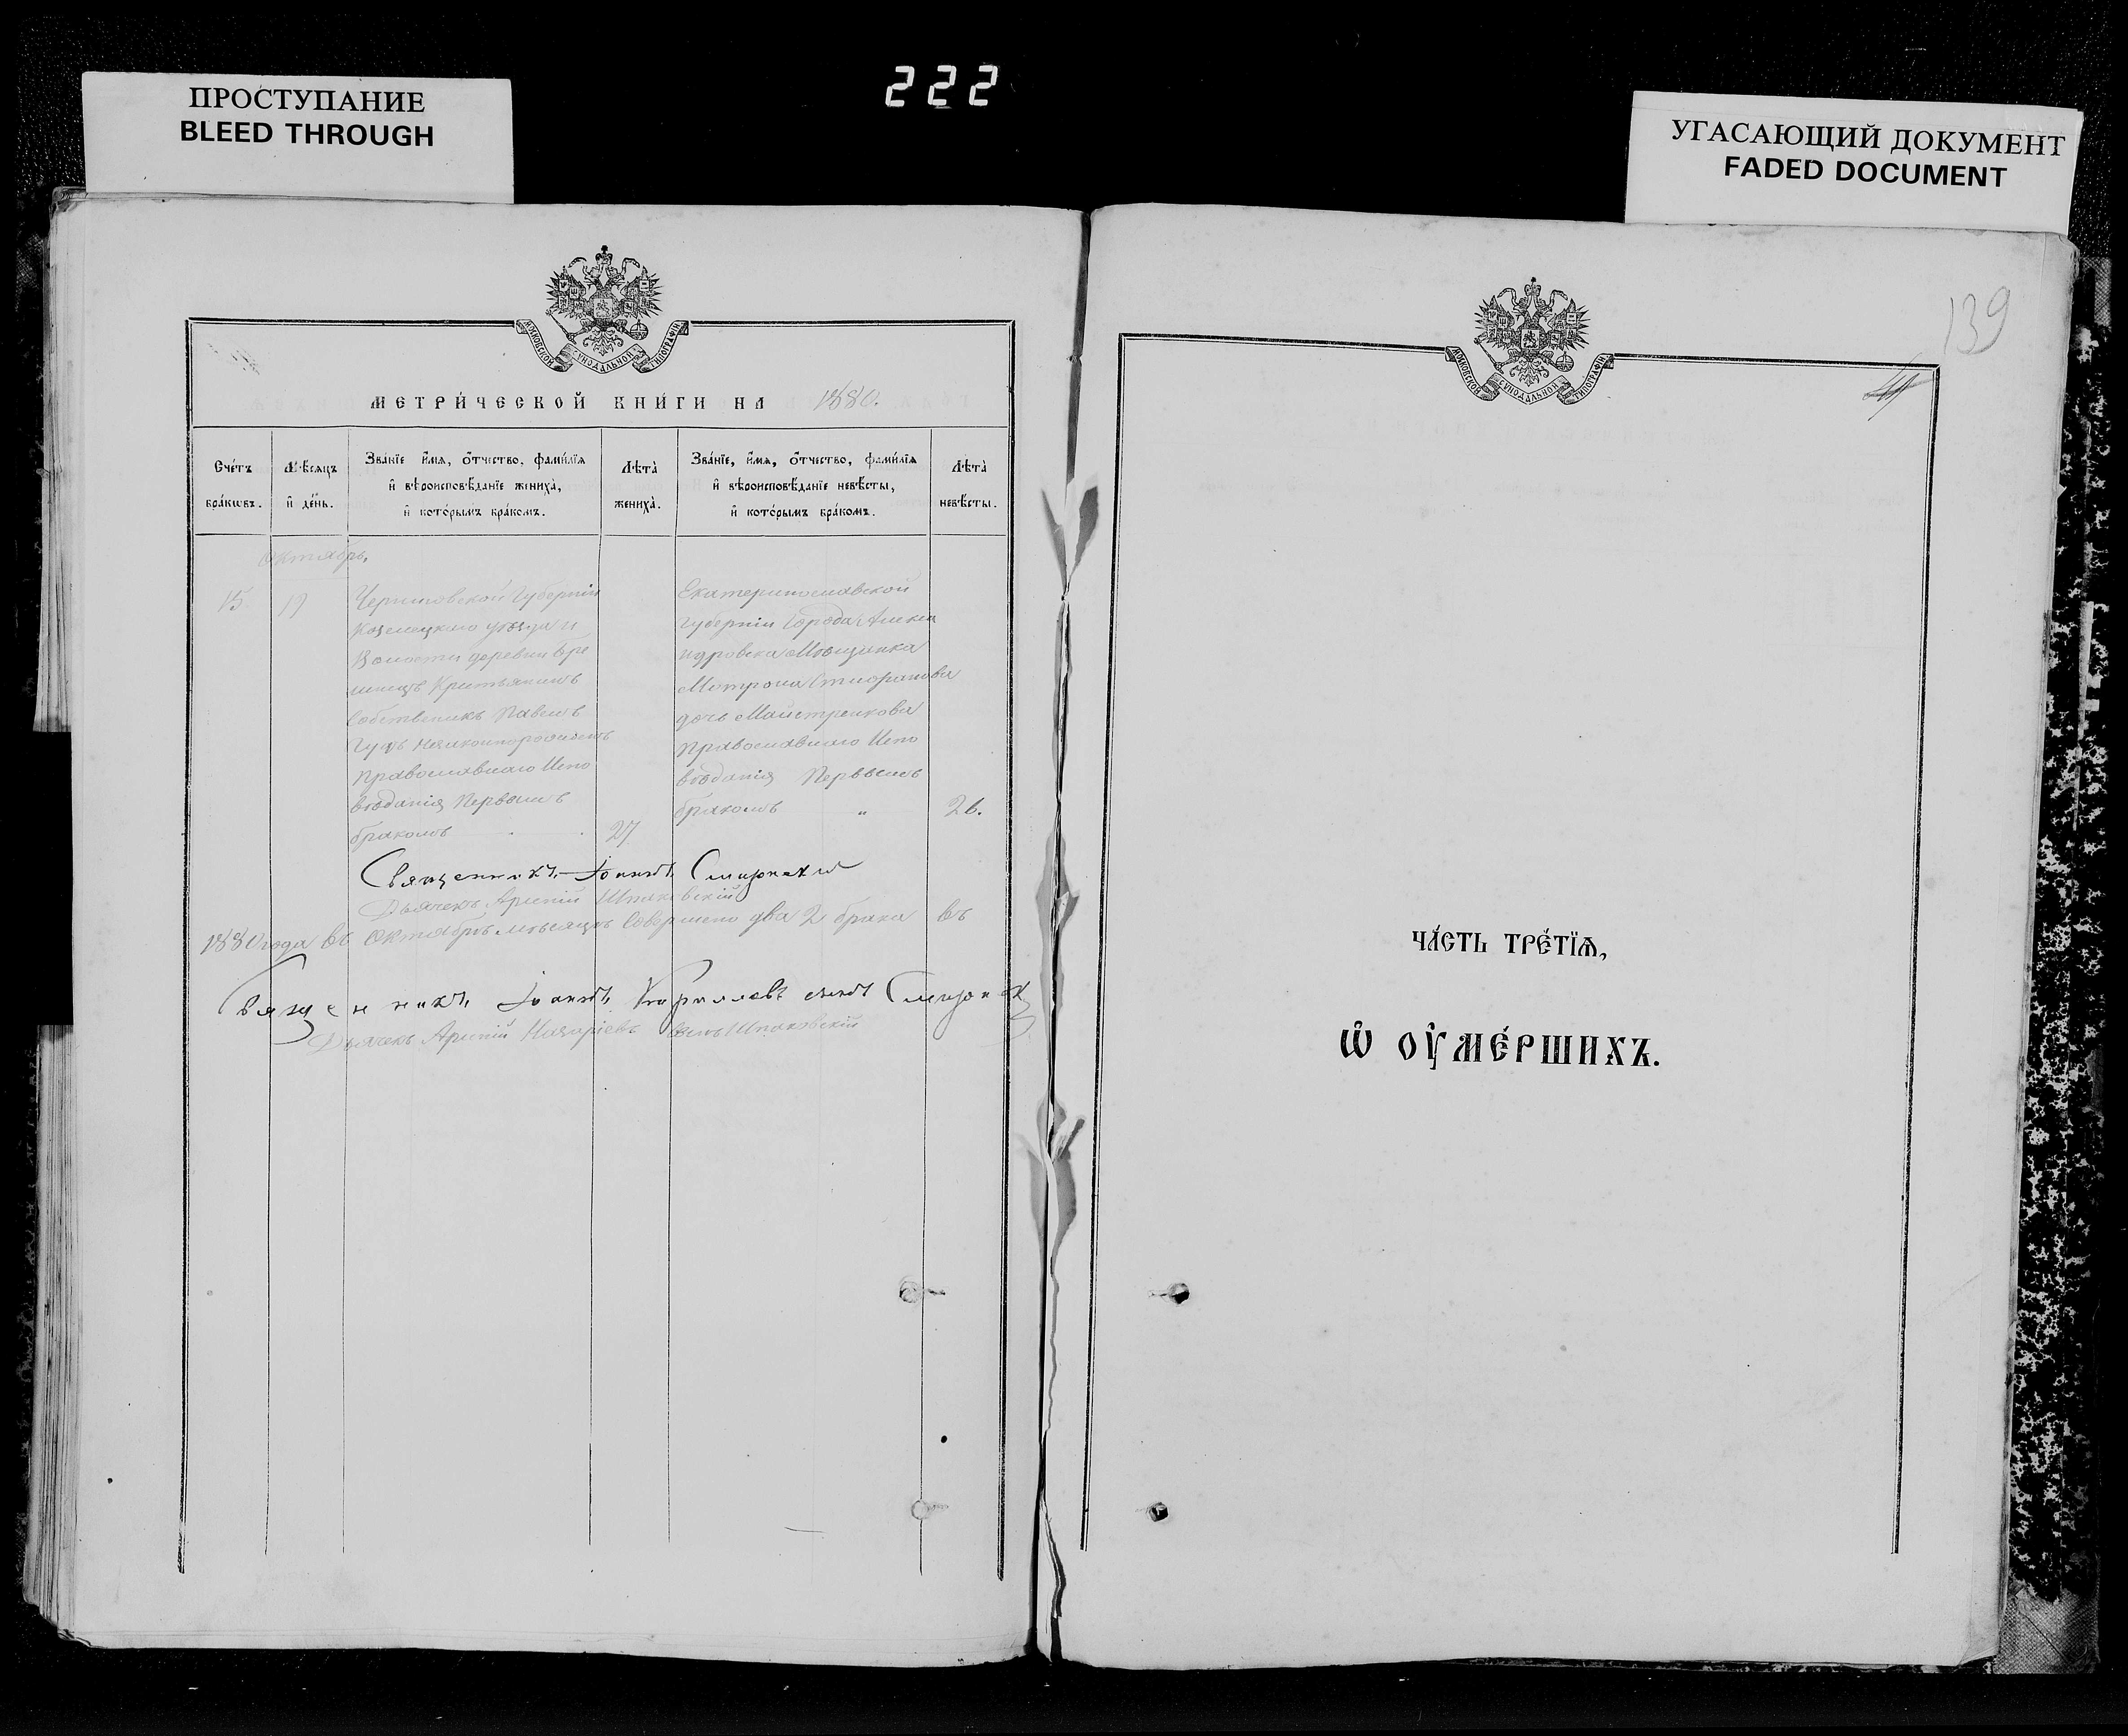 222
ПРОСТУПАНИЕ
BLEED THROUGH
УГАСАЮЩИЙ ДОКУМЕНТ
FADED DOCUMENT
МОСКОВСКОЙ СѴНОДАЛЬНОЙ ТИПОГРАФІИ
МЕТРИ́ЧЕСКОЙ КНИ́ГИ НА 1880.
Сче́тъ бра́кѡвъ.
Мѣ́сяцъ и҆ де́нь.
Зва́нїе и҆́мѧ, ѻ҆́тчество, фами́лїѧ
и҆ вѣроисповѣ́данїе жениха̀,
и҆ кото́рымъ бра́комъ.
Лѣта̀ жениха̀.
Зва́нїе, и҆́мѧ, ѻ҆́тчество, фами́лїѧ
и҆ вѣроисповѣ́данїе невѣ́сты,
и҆ кото́рымъ бра́комъ.
Лѣта̀ невѣ́сты.
Октябрь.
15
19
Черниговской Губерніи
Козелецкаго уѣзда и
Волости деревни
Крестьянинъ
Собственникъ Павелъ
Православнаго Испо
вѣданія Первымъ
бракомъ
27
Екатеринославской
Губерніи Города Алекса
ндровска Мѣщанка
Мотрона
дочь Майстренкова
Православнаго Испо
вѣданія Первымъ
бракомъ "
26.
Священникъ Іоаннъ
Дьячекъ Арсеній Шпаковскій
1880 года въ Октябрѣ мѣсяцѣ Совершено два 2 брака въ
Священникъ Іоаннъ Кирилловъ сынъ
Дьячекъ Арсеній Назаріевъ сынъ Шпаковскій
139
МОСКОВСКОЙ СѴНОДАЛЬНОЙ ТИПОГРАФІИ
ЧА́СТЬ ТРЕ́ТЇѦ,
Ѽ ОУ҆МЕ́РШИХЪ.